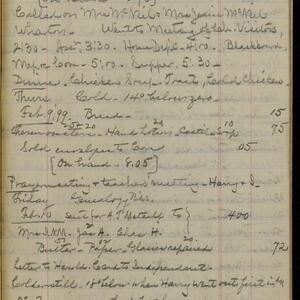 Called on Mrs McNeil & Mrs Jessie McNeil
Wharton. Went to Meeting of Com. Visitors,
2:30 - Host, 3:30 - Home Dept. - 4:00, Blackboard,
Map - 5:00, Supper. 5:30 -
Dinner - Chicken Soup - Cold Chicken
Thurs Cold. 14° below zero
Feb. 9, 99. Bread - 15
25 20 20 10
Hand Lotion, Castile Soap 75
Sold envelopes to Cora 05
[On hand - 8.05]
Prayermeeting & teachers meeting - Harry & I.
Friday
Feb. 10 sent for A. J. Metcalf to } 400
Mrs. J. M. Jas A. Chas H.
20
Butter - Paper - Glasses repaired 72
Letter to Harold - Card to Independent
Colder still - 18° below when Harry went out first in